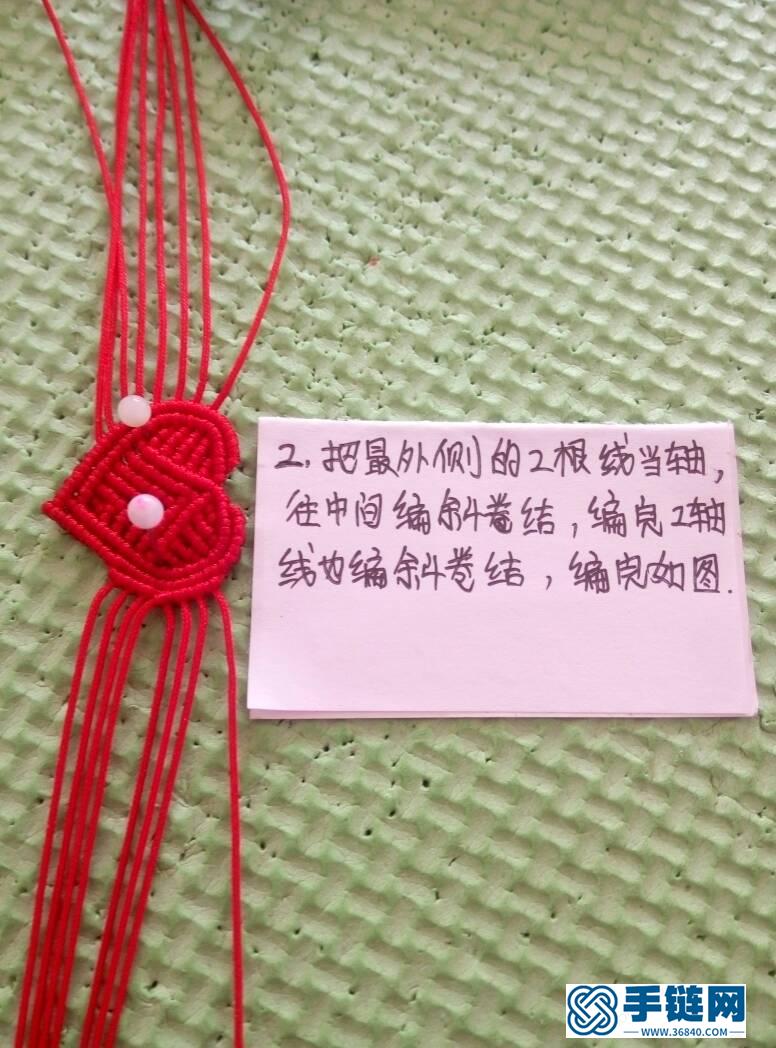 2. 把最外侧的2根线当轴,
往中间编斜卷结,编完2轴
线也编斜卷结,编完如图.
手链网
WWW.36840.COM